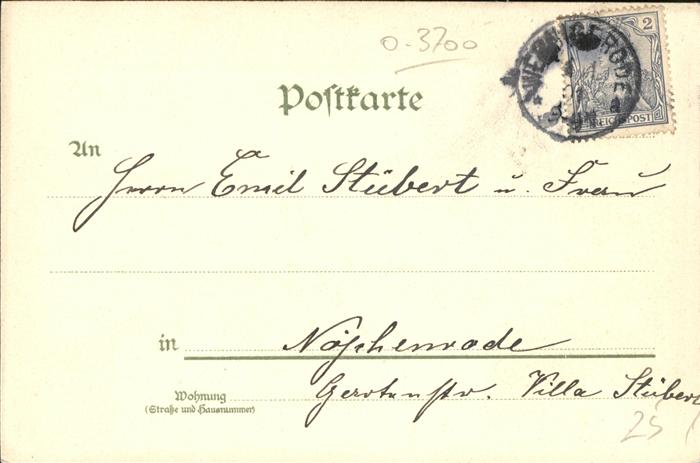 0-3700
2
WERNIGERODE
REICHSPOST
Postkarte
An
Herrn Emil Stübert u. Frau
in Nöschenrode
Wohnung
(Straße und Hausnummer)
Villa Stübert
25